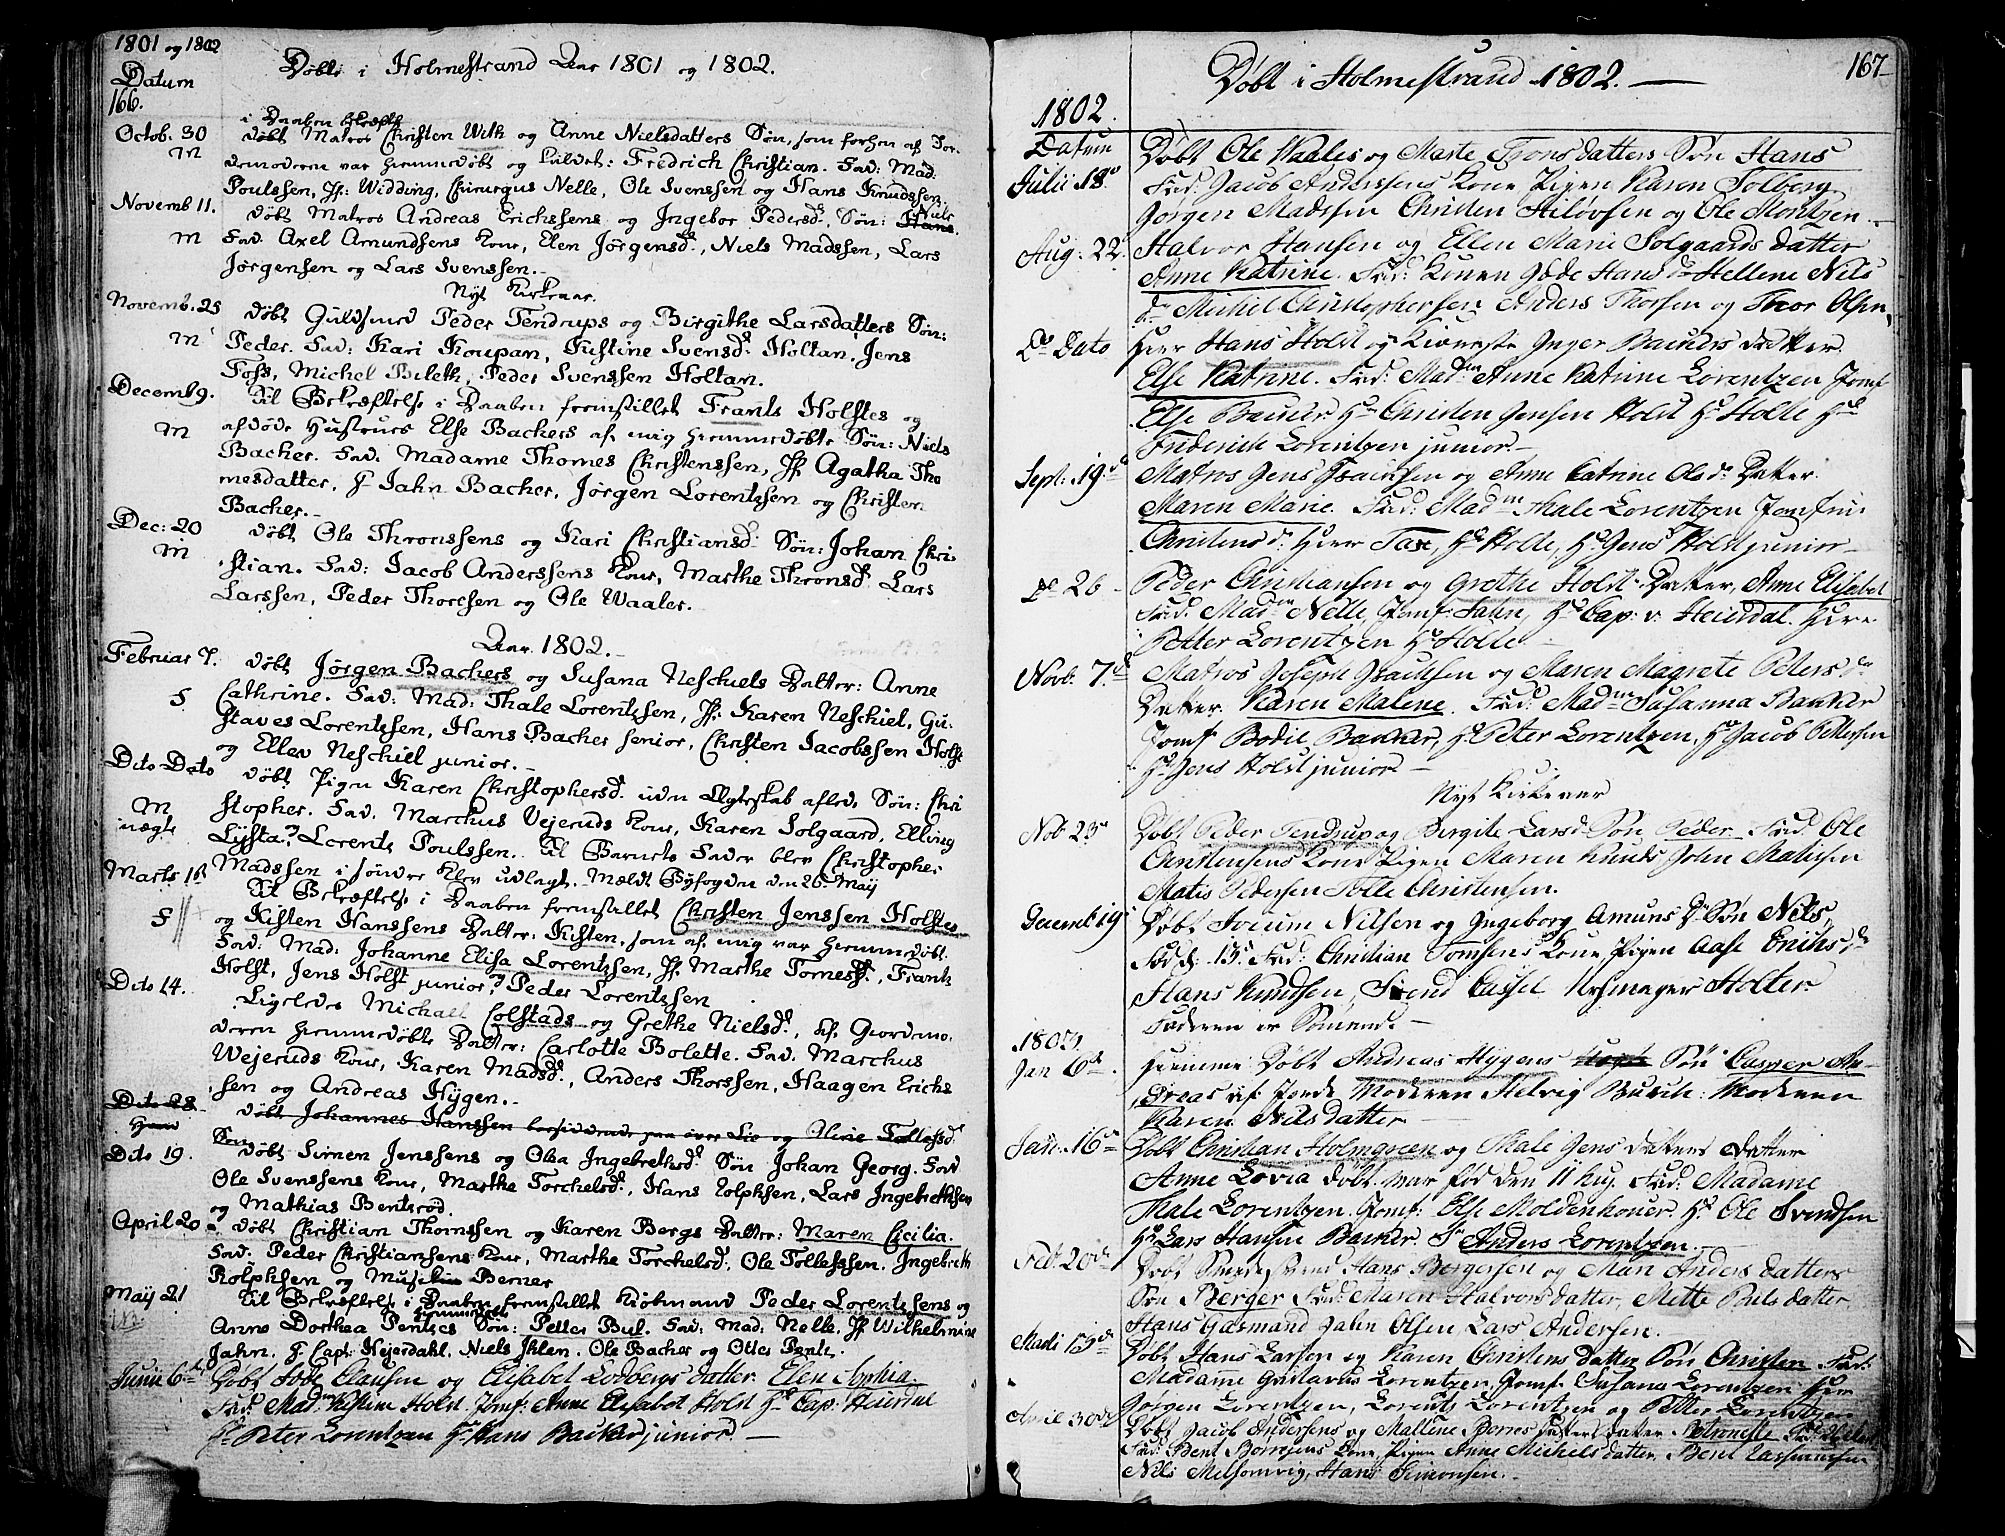 1801 og 1802
Døbte i Holmestrand Aar 1801 og 1802.
Datum
166.
i Daaben bekræftet
Octob. 30 døbt Matros Christen With og Anne Nielsdatters Søn, som forhen af Jor-
M demoderne var hiemmedøbt og kaldet: Fredrich Christian. Fad: Mad:
Poulssen, Jf: Widding, Chirurgus Nelle, Ole Svenssen og Hans Knudssen.
Novemb 11. døbt Matros Andreas Erichssens og Ingebor Pedersd. Søn: Hans. Niels
M Fad. Axel Amundsens Kone, Elen Jørgensd., Niels Madssen, Lars
Jørgensen og Lars Svenssen.
Nyt Kirkeaar.
Novemb. 25 døbt Guldsmed Peder Tendrups og Birgithe Larsdatters Søn:
M Peder. Fad: Kari Koupan, Kistine Svensd. Holtan, Jens
Foss, Michel Bileth, Peder Svenssen Holtan.
Decemb 9. Til Bekræftelse i Daaben fremstillet Frants Holstes og
M afdøde Hustrues Else Bachers af mig hiemmedøbte Søn: Niels
Bacher. Fad: Madame Thomes Christenssen, Jf Agatha Tho
mesdatter, Hr Jahn Bacher, Jørgen Lorentzsen og Christen
Bacher.
Dec: 20 døbt Ole Thronssens og Kari Christiansd. Søn: Johan Chri-
M stian. Fad: Jacob Anderssens Kone, Marthe Thronsd. Lars
Larssen, Peder Thoresen og Ole Waaler.
Aar 1802.
Februar 7. døbt Jørgen Bachers og Susana Neschiels Datter: Anne
S Cathrine. Fad: Mad: Thale Lorentzsen, Jf: Karen Neschiel, Gu-
staves Lorentzsen, Hans Bacher senior, Christen Jacobssen Holst
og Ellev Neschiel junior.
Dito Dato døbt Pigen Karen Christophersd. uden Ægteskab aflede Søn: Chri
M stopher. Fad. Marchus Vejeruds Kone, Karen Solgaard, Elling
uægte Lysta? Lorents Poulssen. Til Barnets Fader blev Christopher
Madssen i søndre Klev udlagt. Mældt Byfogden den 26 Maij
Marts 1 Til Bekræftelse i Daaben fremstillet Christen Jenssen Holstes
S og Kisten Hanssens Datter: Kisten, som af mig var hiemmedøbt.
Fad: Mad: Johanne Elisa Lorentzsen, Jf. Marthe Tomesd., Frants
Holst, Jens Holst junior og Peder Lorentzsen
Dito 14. Ligeledes Michael Colstads og Grethe Nielsd., af Giordemo-
deren hiemmedøbte Datter: Carlotte Bolette. Fad. Marchus
Wejeruds Kone, Karen Madsd., Anders Thorssen, Haagen Erichs
sen og Andreas Hÿgen.
Dito 28 døbt Johannes Hanssen og Marie Tollefsd.
Søn
Dito 19. døbt Simen Jenssens og Olea Ingebrethsd. Søn Johan Georg. Fad
Ole Svenssens Kone, Marthe Torchelsd., Hans Rolphsen, Lars Ingebrethsen
og Mathias Bentsrød.
April 20 døbt Christian Thomssen og Karen Bergs Datter: Maren Cicilia.
Fad: Peder Christiansens Kone, Marthe Torchelsd. Ole Tollefssen, Ingebreth
Rolphsen og Berner
Maij 21 Til Bekræftelse i Daaben fremstillet Kiøbmand Peder Lorentzsens og
Anne Dorthea Pentzes hiemmedøbt Søn: Petter Bul. Fad: Mad: Nelle, Jf Wilhelmine
Jahn, Hr Capt: Hejerdahl, Niels Ihlen, Ole Bacher og Otto Pentz.
Junii 6te Døbt Tobe Clausen og Elisabet Lodbergs datter. Elen Sophia.
Fad. Madm Kistine Holst. Jomf: Anne Elisabet Holst Hr Cap: Heierdal
Hr Peter Lorentzen Hr Hans Backer junior.
167
Døbt i Holmestrand 1802.
1802.
Datum
Julii 18de Døbt Ole Waales og Marte Tronsdatters Søn Hans
Fad: Jacob Anderssens Kone Pigen Karen Solberg
Jørgen Madssen Christen Hiløvsen og Ole Montzen.
Aug: 22. Halvor Hansen og Ellen Marie Solgaards datter
Anne Katrine. Fad: Konen Giøde Hans dr Hellene Nils
dr Michel Christophersen Anders Thorsen og Thor Olsen,
Do Dato Herr Hans Holst og Kiereste Inger Backers datter.
Else Katrine. Fad: Madm Anne Katrine Lorentzen Jomf
Else Backer Hr Christen Jensen Holst Hr Holte Hr
Friderich Lorentzen junior.
Sept: 19de Matros Jens Isachsen og Anne Catrine Olsd: Datter:
Maren Marie. Fad: Madm Thale Lorentzen Jomfru
Christensd: Herr Tax, Hr Holte, Hr Jens Holst junior
do 26 Peder Christiansen og Grethe Holst Datter, Anne Elisabet
Fad. Madm Nelle, Jomf: Jahn, Hr Cap: v: Heierdal. Herr
Petter Lorentzen Hr Holte
Novb: 7de Matros Joseph Isachsen og Maren Magrete Peters dr
Datter. Karen Malene. Fad: Madm Susanna Backer
Jomf Bodil Backer, Hr Peter Lorentzen, Hr Jacob Pettersen
Hr Jens Holst junior
Nyt Kirkeaar
Nob 23de Døbt Peder Tendrup og Bergite Larsd Søn Peder. Fad. Ole
Christensens Kone Pigen Maren Knuds John Matisen
Matis Pedersen Tolle Christensen.
Decemb 19 Døbt Joeum Nilsen og Ingeborg Amuns Dr Søn Nils,
Fød d: 13. Fad: Christian Tomsens Kone Pigen Aase Eriksd
Hans Knudsen, Svend Cassel Urhmager Holter
Faderen er Sømand.
1803.
Jan 6te Hiemme Døbt Andreas Hÿgens Søn Casper An-
dreas af Jorde Moderen Helvig Buvik: Moderen
Karen Nilsdatter
Jan: 16de Døbt Christian Holmgreen og Thale Jens datters Datter
Anne Lovia døbt. var fød den 11 huj. Fad: Madame
Thale Lorentzen. Jomf: Else Moldenhouer. Hr Ole Svendsen
Hr Lars Hansen Backer. Hr Anders Lorentzen.
Feb: 20de Døbt Smedesvend Hans Bergersen og Mari Anders datters
Søn Berger Fad: Maren Halvorsdatter, Mette Pouls datter
Hans Gaasmand Jahn Olsen, Lars Andersen.
Marti 13de Døbt Hans Larsen og Karen Christens datter Søn Christen Fad:
Madame Gustavus Lorentzen, Jomf. Susana Lorentzen Herr
Jørgen Lorentzen, Lorents Lorentzen og Petter Lorentzen
April 30de Døbt Jacob Andersens og Mallene Børres datters datter Petronelle
Fad: Bent Børresens Kone Pigen Anne Michels datter. Bent Rasmussen
Nils Melsomvig, Hans Simonsen.